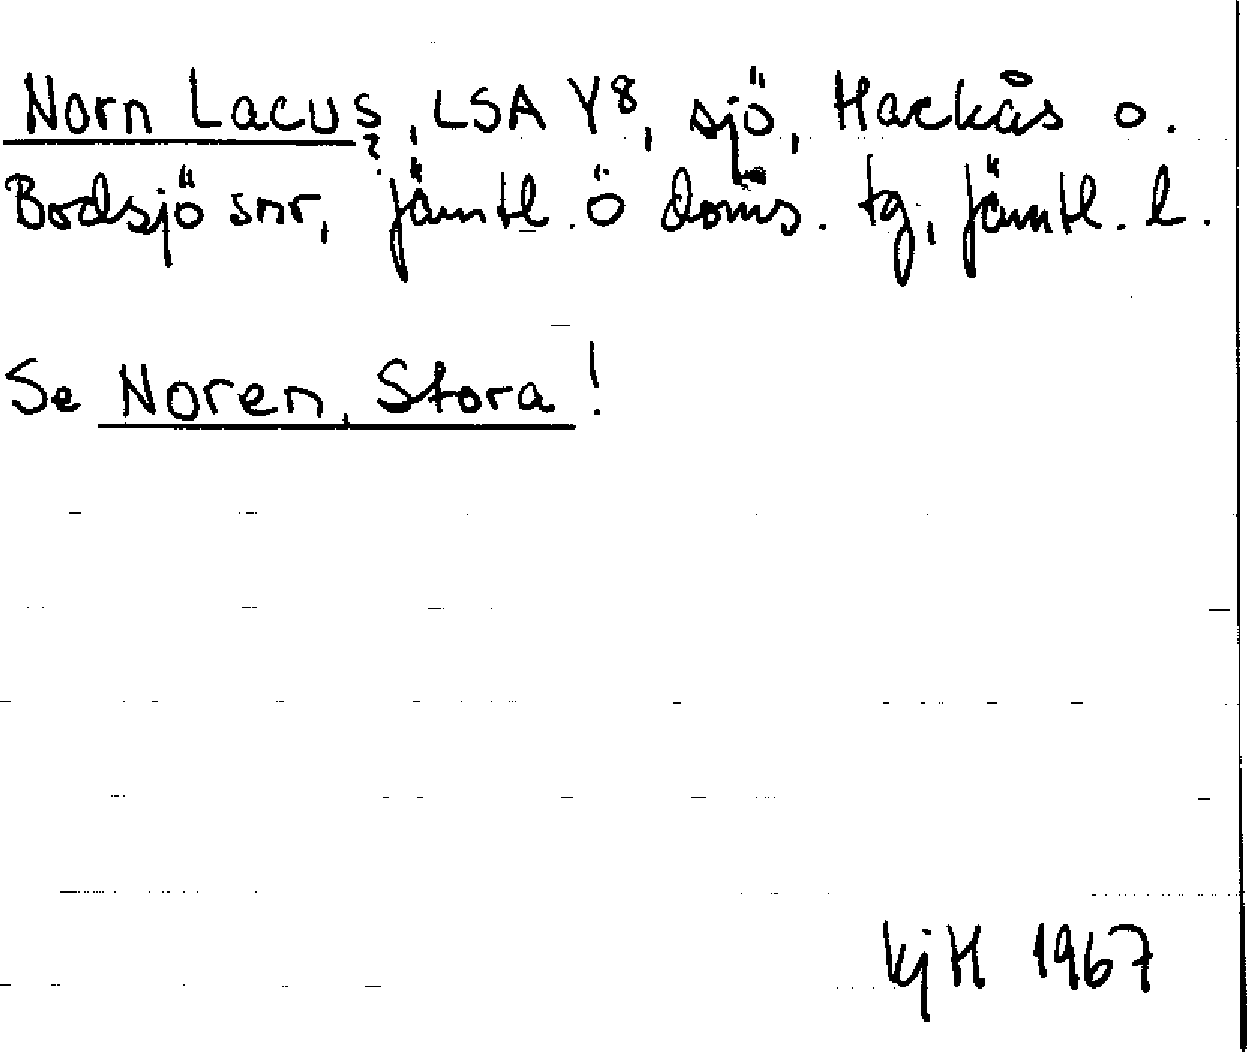 Norn Lacus, LSA Y8, sjö, Hackås o.
?
Bodsjö snr, Jämtl. ö doms. tg, Jämtl. l.
Se Noren, Stora!
KjH 1967